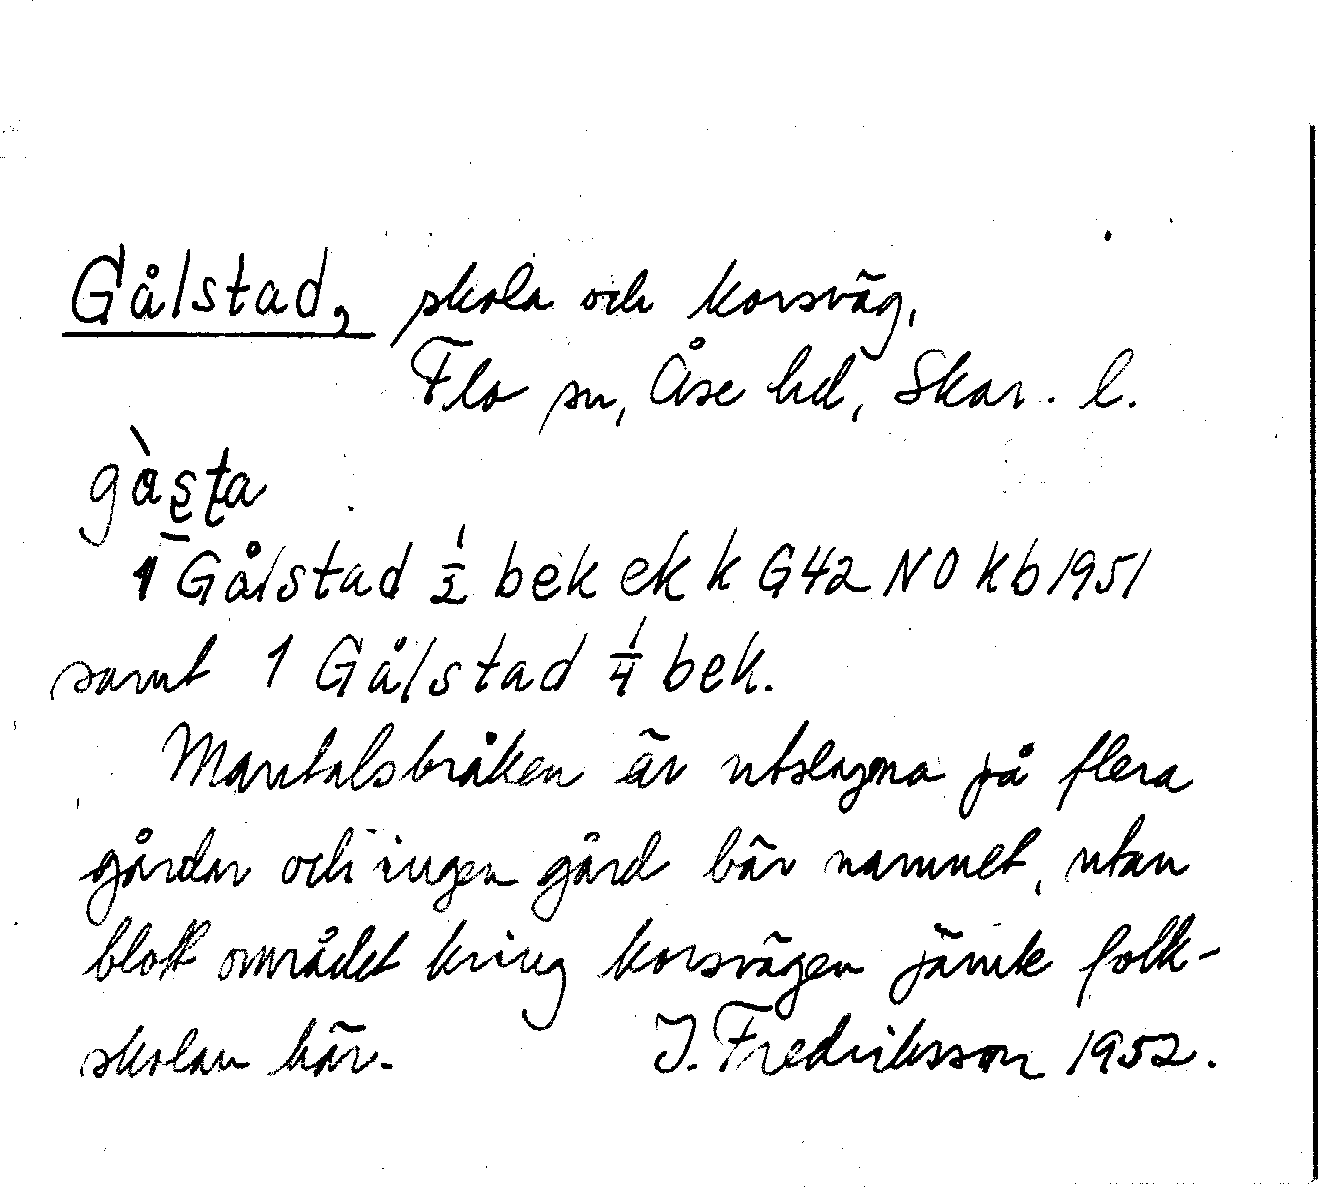 Gålstad, skola och korsväg,
Flo sn, Åse hd, Skar. l.
gàsta
1 Gålstad 1/2 bek ek k G42 NO kb 1951
samt 1 Gålstad 1/4 bek.
Mantalsbråken är utslagna på flera
gårdar och ingen gård bär namnet, utan
blott området kring korsvägen jämte folk-
skolan här. J. Fredriksson 1952.